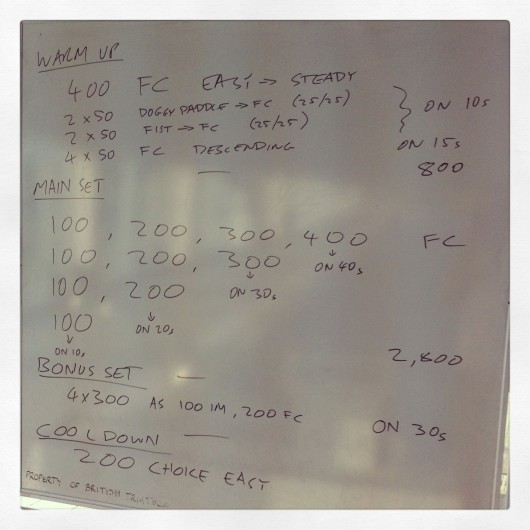 WARM UP
400 FC EASY → STEADY
2 x 50 DOGGY PADDLE → FC (25/25)
2 x 50 FIST → FC (25/25) } ON 10s
4 x 50 FC DESCENDING ON 15s
800
MAIN SET
100, 200, 300, 400 FC
100, 200, 300 ↓ ON 40s
100, 200 ↓ ON 30s
100 ↓ ON 20s
↓ ON 10s
2,800
BONUS SET
4x300 AS 100 IM, 200 FC ON 30s
COOL DOWN
200 CHOICE EASY
PROPERTY OF BRITISH